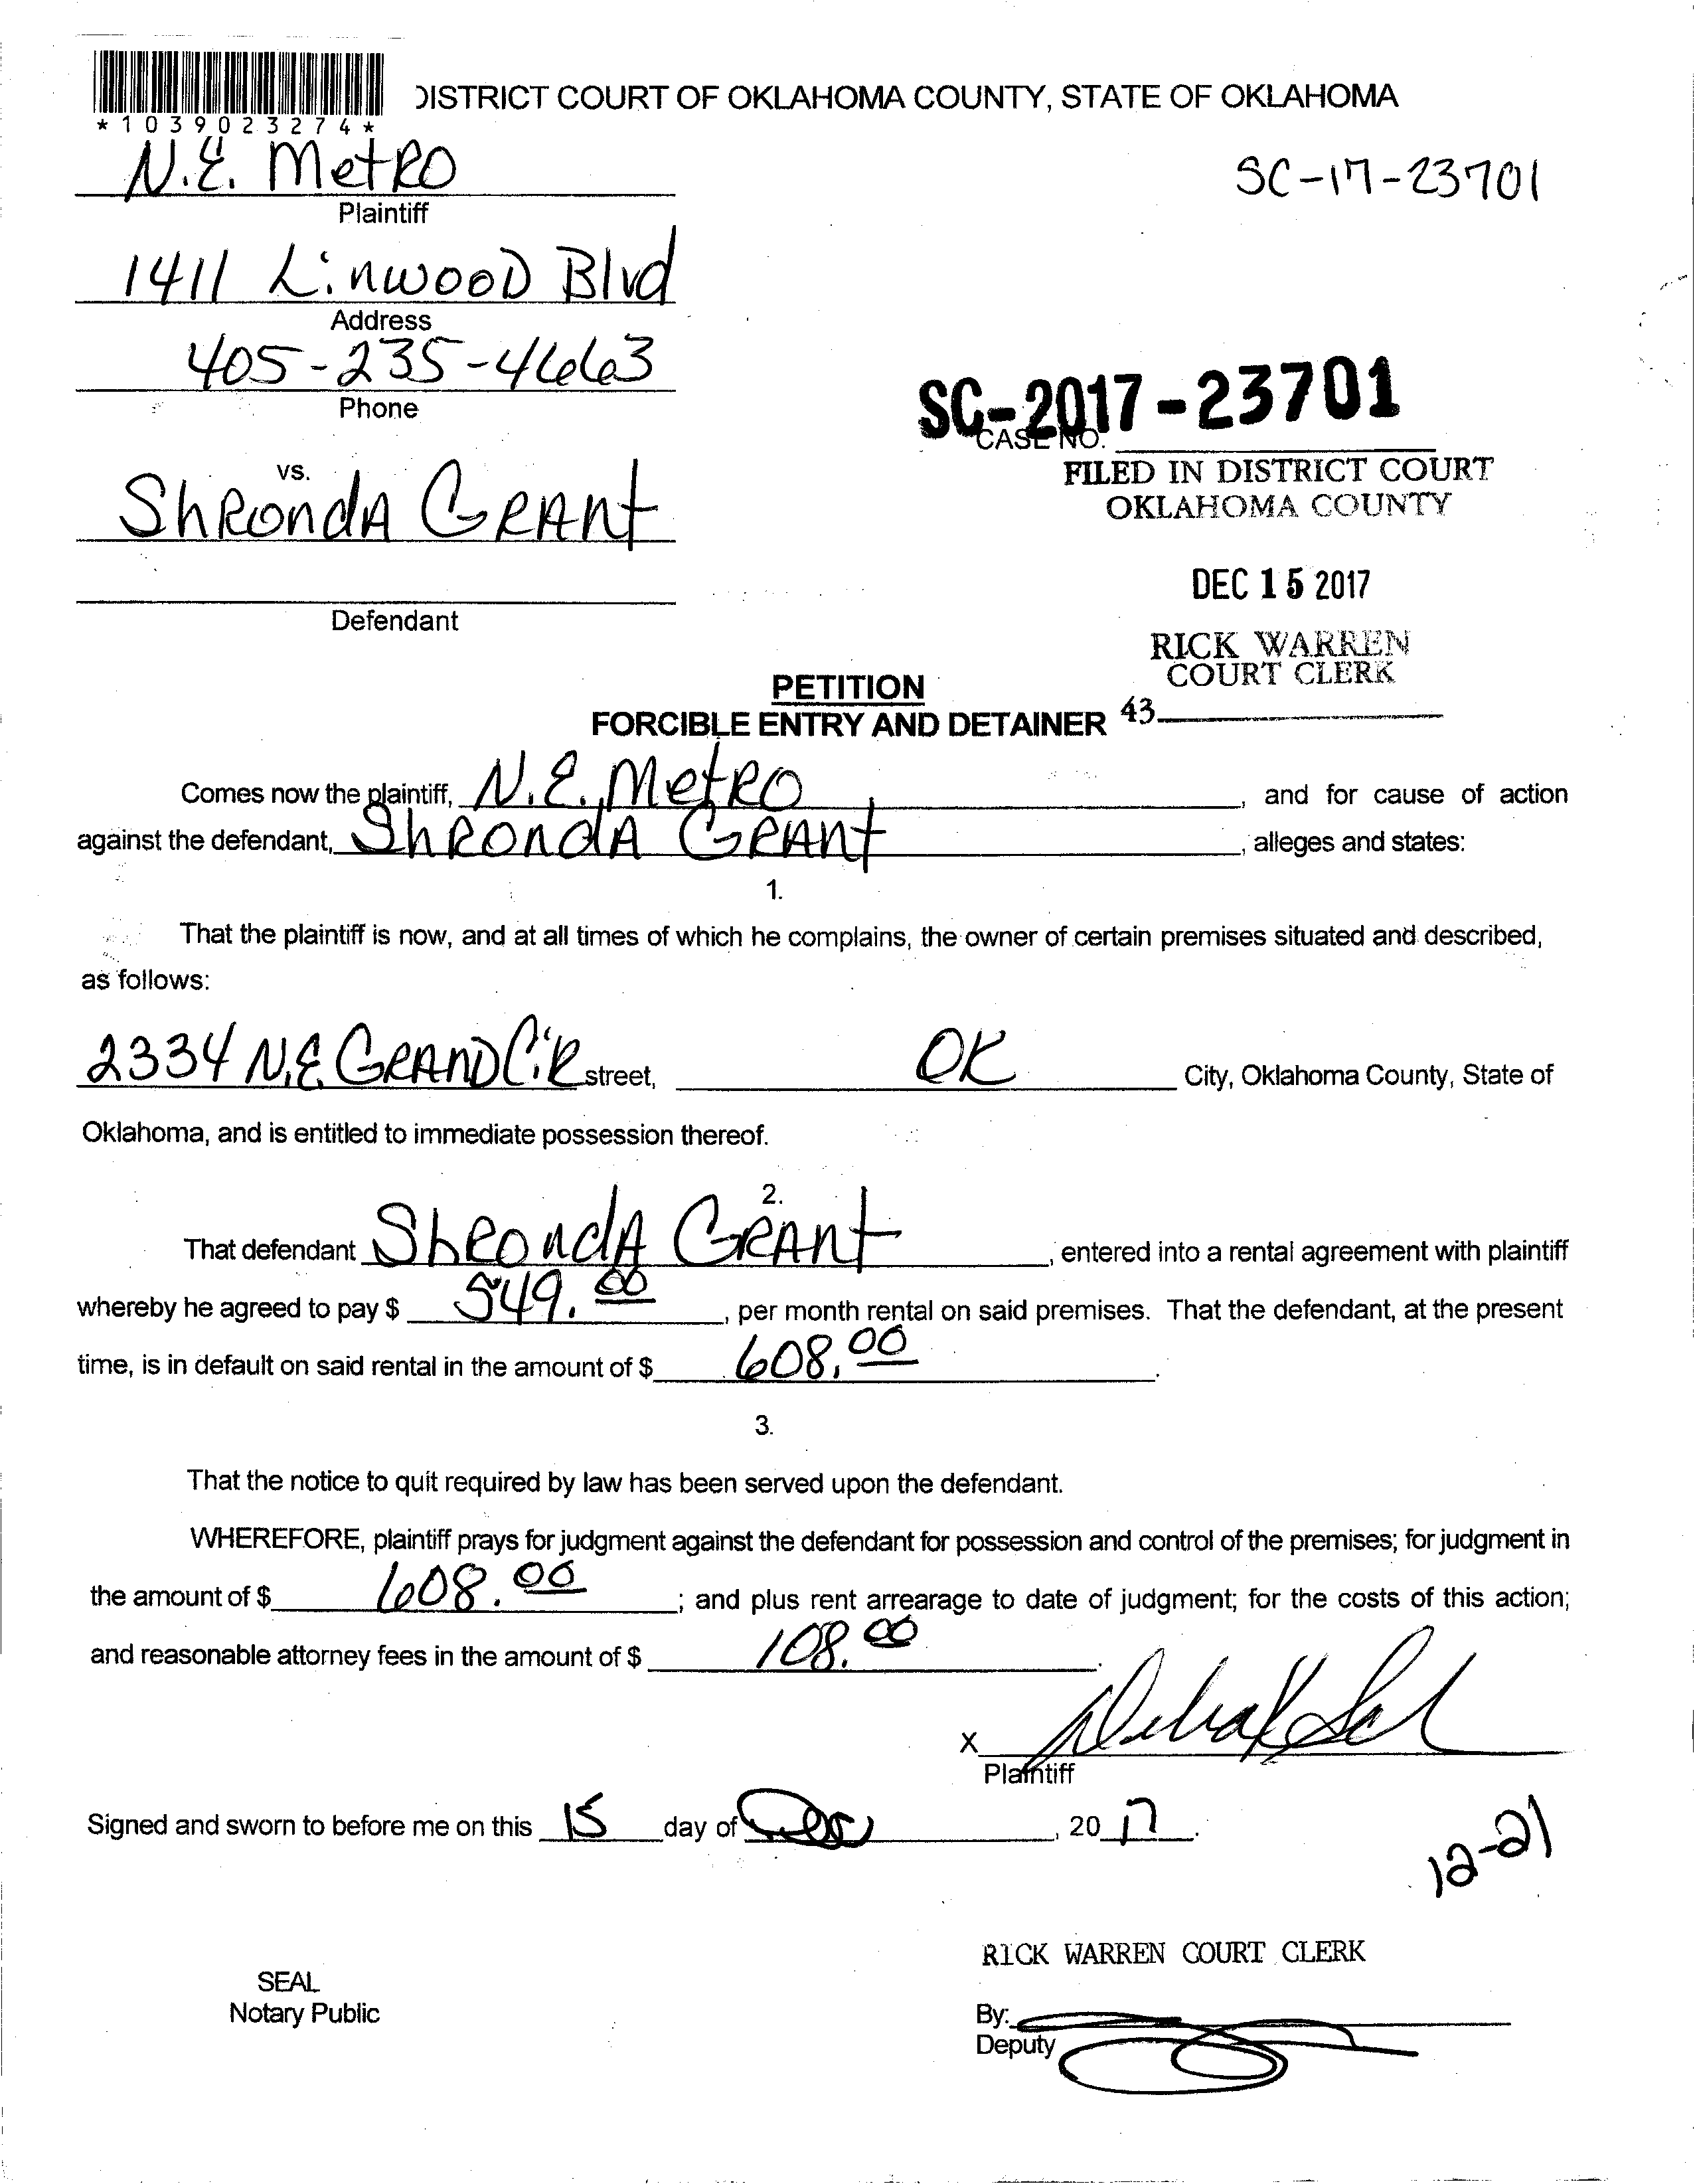 DISTRICT COURT OF OKLAHOMA COUNTY, STATE OF OKLAHOMA
*1039023274*
N.E. MetRO
SC-17-23701
Plaintiff
1411 LinwooD Blvd
Address
405-235-4663
Phone
SC-2017-23701
CASE NO.
vs.
FILED IN DISTRICT COURT
OKLAHOMA COUNTY
ShRondA GRAnt
DEC 15 2017
Defendant
RICK WARREN
COURT CLERK
PETITION
43
FORCIBLE ENTRY AND DETAINER
Comes now the plaintiff, N.E. MetRO, and for cause of action
against the defendant, ShRondA GRAnt, alleges and states:
1.
That the plaintiff is now, and at all times of which he complains, the owner of certain premises situated and described,
as follows:
2334 N.E GRAND CiR street, OK City, Oklahoma County, State of
Oklahoma, and is entitled to immediate possession thereof.
2.
That defendant ShRondA GRAnt, entered into a rental agreement with plaintiff
whereby he agreed to pay $ 549.00, per month rental on said premises. That the defendant, at the present
time, is in default on said rental in the amount of $ 608.00.
3.
That the notice to quit required by law has been served upon the defendant.
WHEREFORE, plaintiff prays for judgment against the defendant for possession and control of the premises; for judgment in
the amount of $ 608.00; and plus rent arrearage to date of judgment; for the costs of this action;
and reasonable attorney fees in the amount of $ 108.00.
X
Plaintiff
Signed and sworn to before me on this 15 day of Dec, 2017.
12-21
RICK WARREN COURT CLERK
SEAL
Notary Public
By:
Deputy